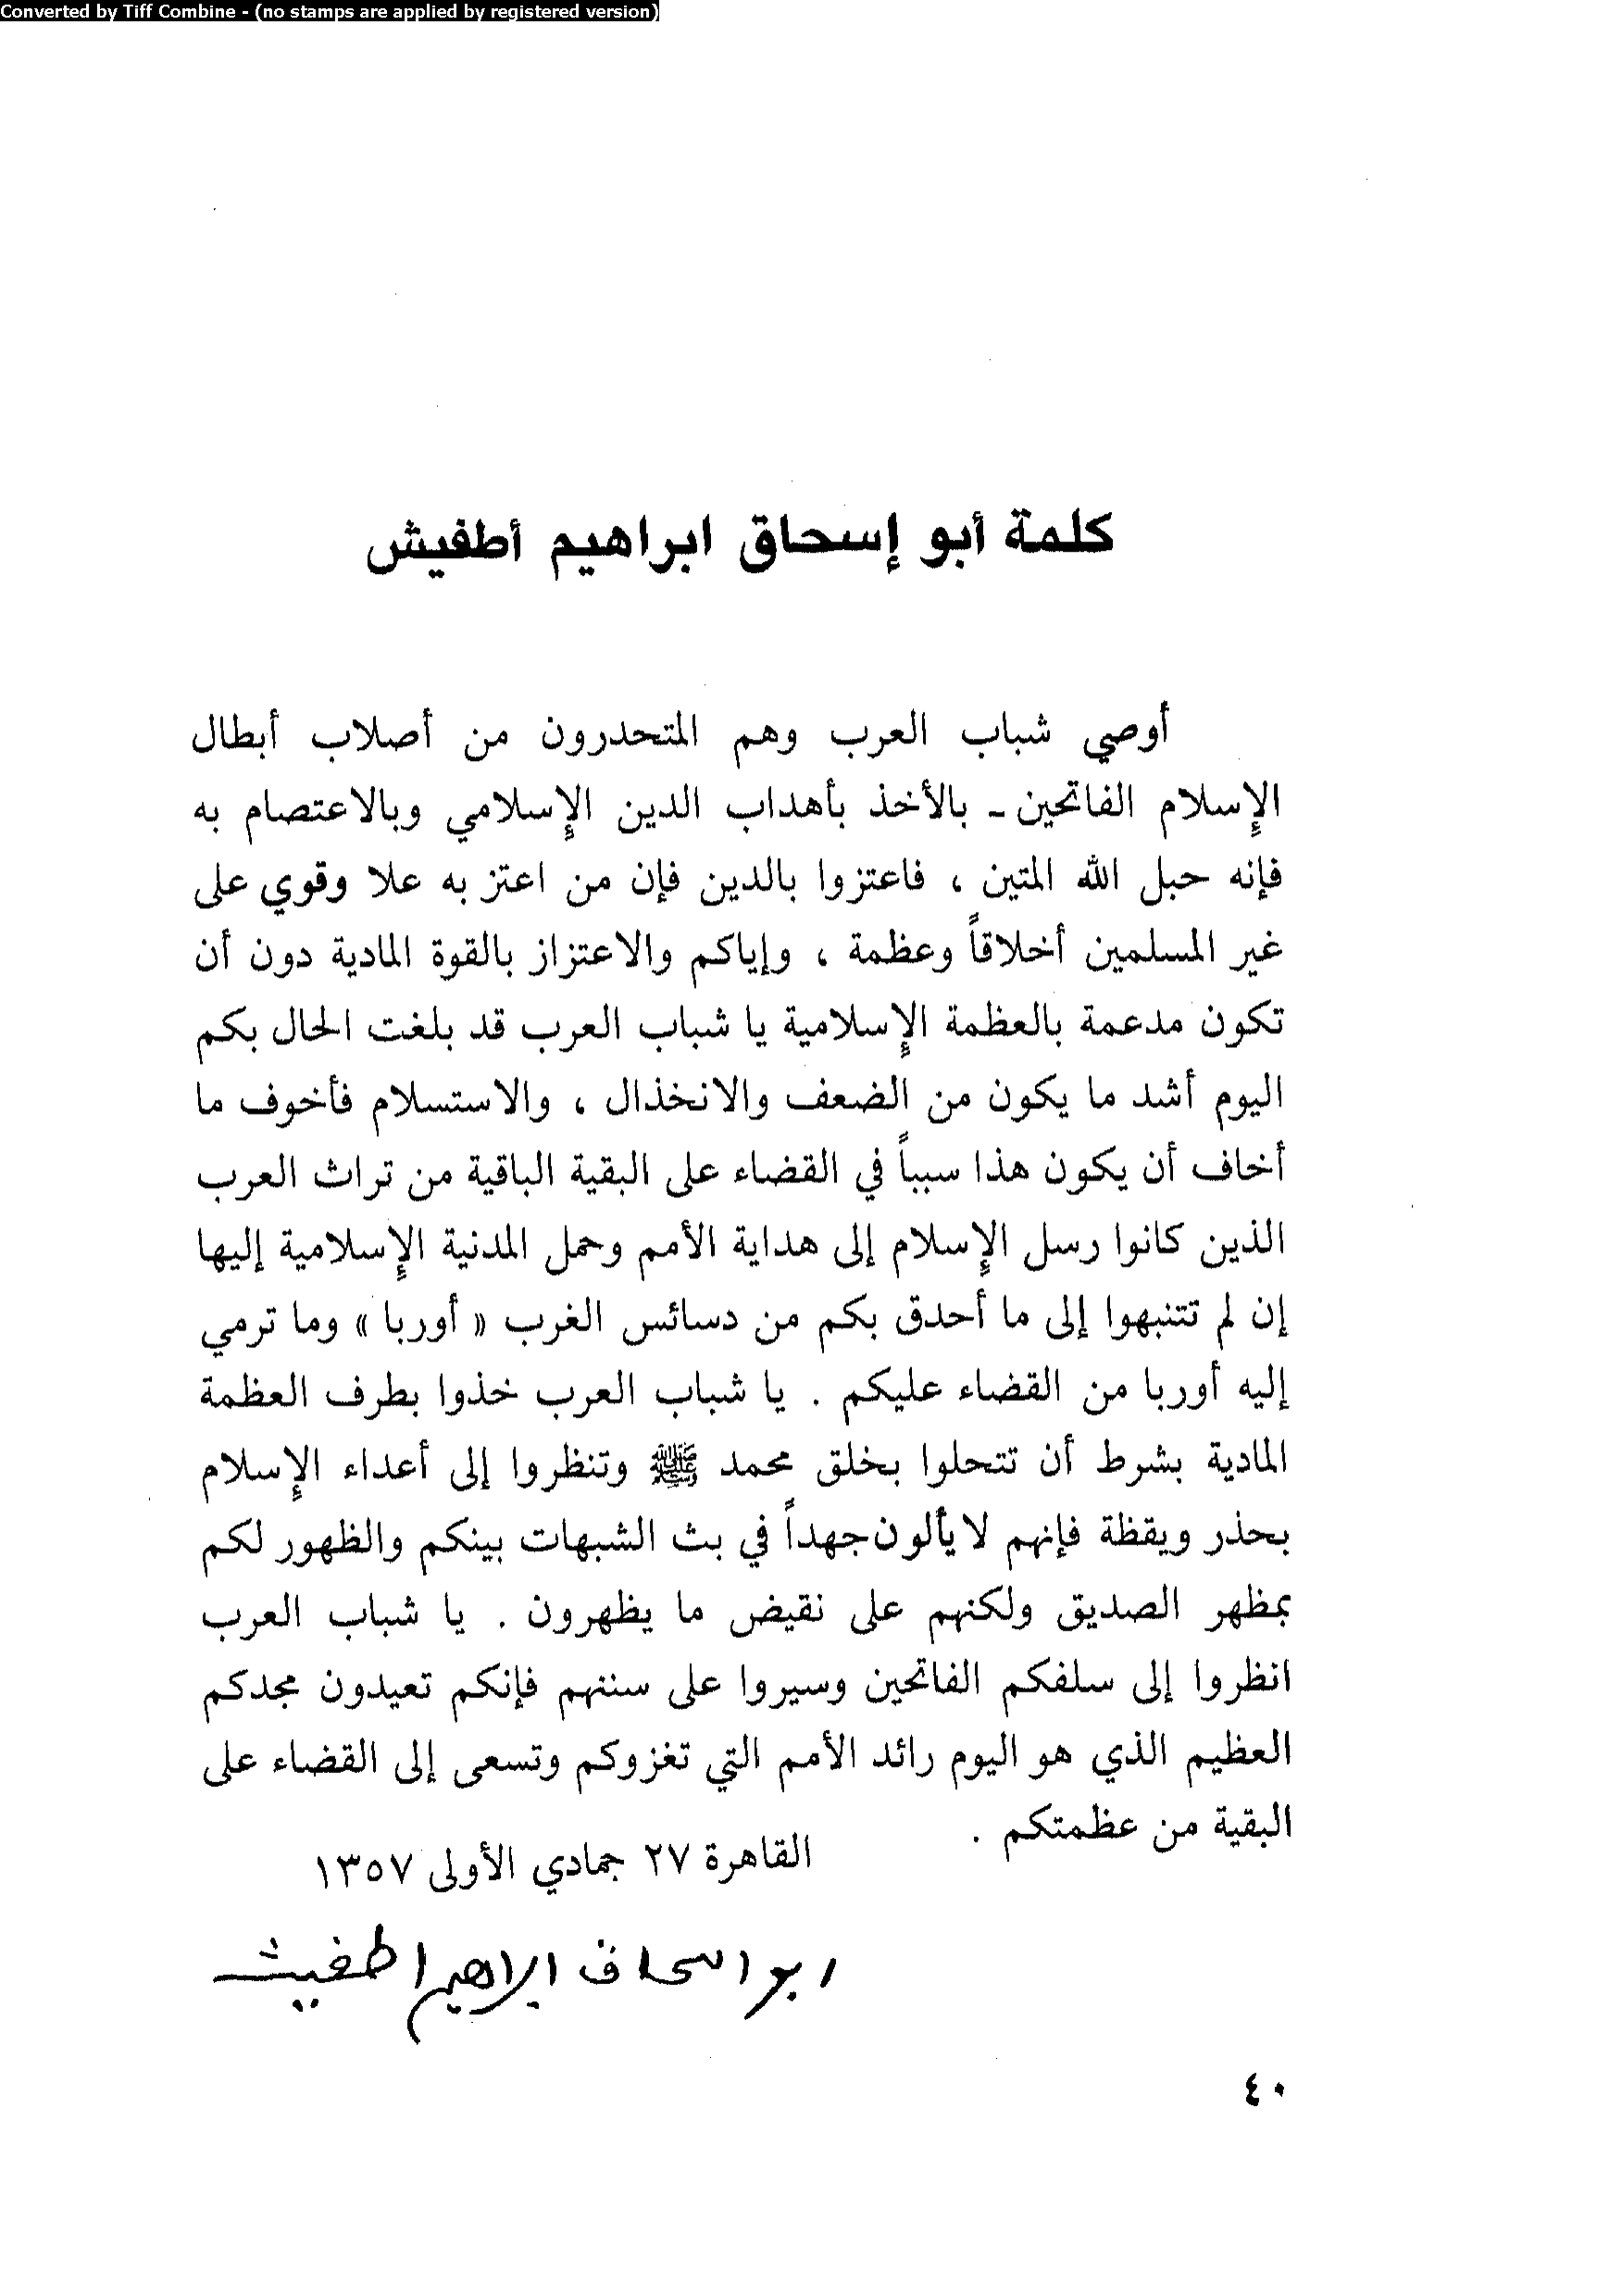 Converted by Tiff Combine - (no stamps are applied by registered version)
كلمة أبو إسحاق ابراهيم أطفيش
أوصي شباب العرب وهم المتحدرون من أصلاب أبطال
الإسلام الفاتحين ـ بالأخذ بأهداب الدين الإسلامي وبالاعتصام به
فإنه حبل الله المتين ، فاعتزوا بالدين فإن من اعتز به علا وقوي على
غير المسلمين أخلاقاً وعظمة ، وإياكم والاعتزاز بالقوة المادية دون أن
تكون مدعمة بالعظمة الإسلامية يا شباب العرب قد بلغت الحال بكم
اليوم أشد ما يكون من الضعف والانخذال ، والاستسلام فأخوف ما
أخاف أن يكون هذا سبباً في القضاء على البقية الباقية من تراث العرب
الذين كانوا رسل الإسلام إلى هداية الأمم وحمل المدنية الإسلامية إليها
إن لم تتنبهوا إلى ما أحدق بكم من دسائس الغرب « أوربا » وما ترمي
إليه أوربا من القضاء عليكم . يا شباب العرب خذوا بطرف العظمة
المادية بشرط أن تتحلوا بخلق محمد ﷺ وتنظروا إلى أعداء الإسلام
بحذر ويقظة فإنهم لا يألون جهداً في بث الشبهات بينكم والظهور لكم
بمظهر الصديق ولكنهم على نقيض ما يظهرون . يا شباب العرب
انظروا إلى سلفكم الفاتحين وسيروا على سننهم فإنكم تعيدون مجدكم
العظيم الذي هو اليوم رائد الأمم التي تغزوكم وتسعى إلى القضاء على
البقية من عظمتكم .
القاهرة ٢٧ جمادي الأولى ١٣٥٧
ابو اسحاق ابراهيم اطفيش
٤٠